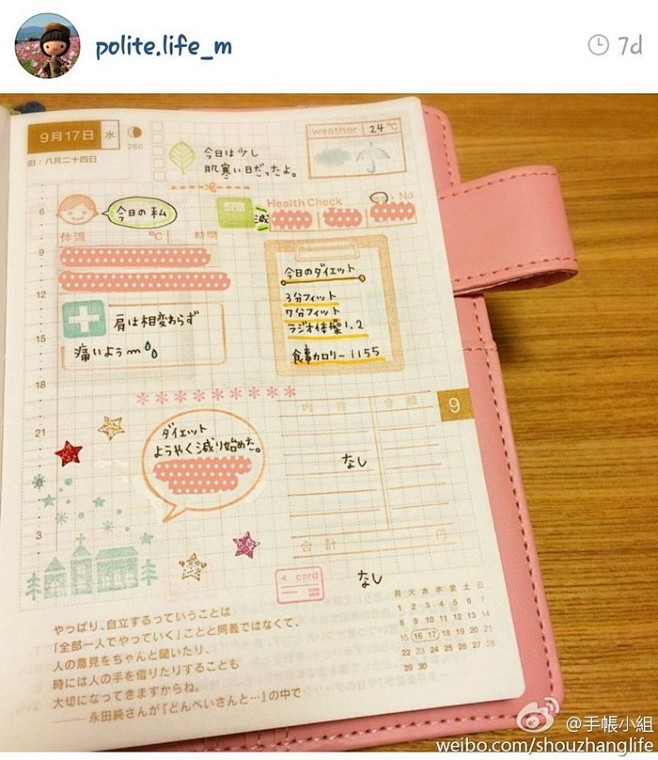 polite.life_m
7d
9月17日 水
260
旧：八月二十四日
今日は少し
肌寒い日だったよ。
weather 24℃
6
今日の私
減
Health Check
No
体温 ℃ 時間
9
今日のダイエット
12
3分フィット
7分フィット
ラジオ体操1、2
食事カロリー 1155
肩は相変わらず
痛いようm
15
18
内容 金額
9
21
ダイエット
ようやく減り始めた。
なし
3
合計 円
card
なし
月 火 水 木 金 土 日
1 2 3 4 5 6 7
8 9 10 11 12 13 14
15 16 17 18 19 20 21
22 23 24 25 26 27 28
29 30
やっぱり、自立するっていうことは
「全部一人でやっていく」ことと同義ではなくて、
人の意見をちゃんと聞いたり、
時には人の手を借りたりすることも
大切になってきますからね。
──永田純さんが『どんべいさんと…』の中で
@手帳小組
weibo.com/shouzhanglife